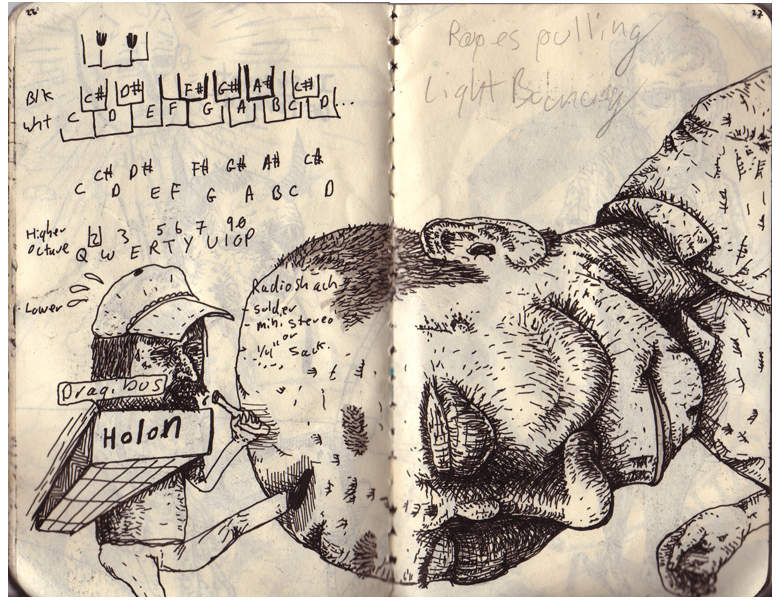 26
27
C# D# F# G# A# C#
Blk
Wht C D E F G A B C D...
C# D# F# G# A# C#
C D E F G A B C D
Higher
octave
2 3 5 6 7 9 0
Q W E R T Y U I O P
Lower
Radio shack
- solder
- mini stereo
or
1/4" Jack
Dragibus
Holon
Ropes pulling
Light Bouncing